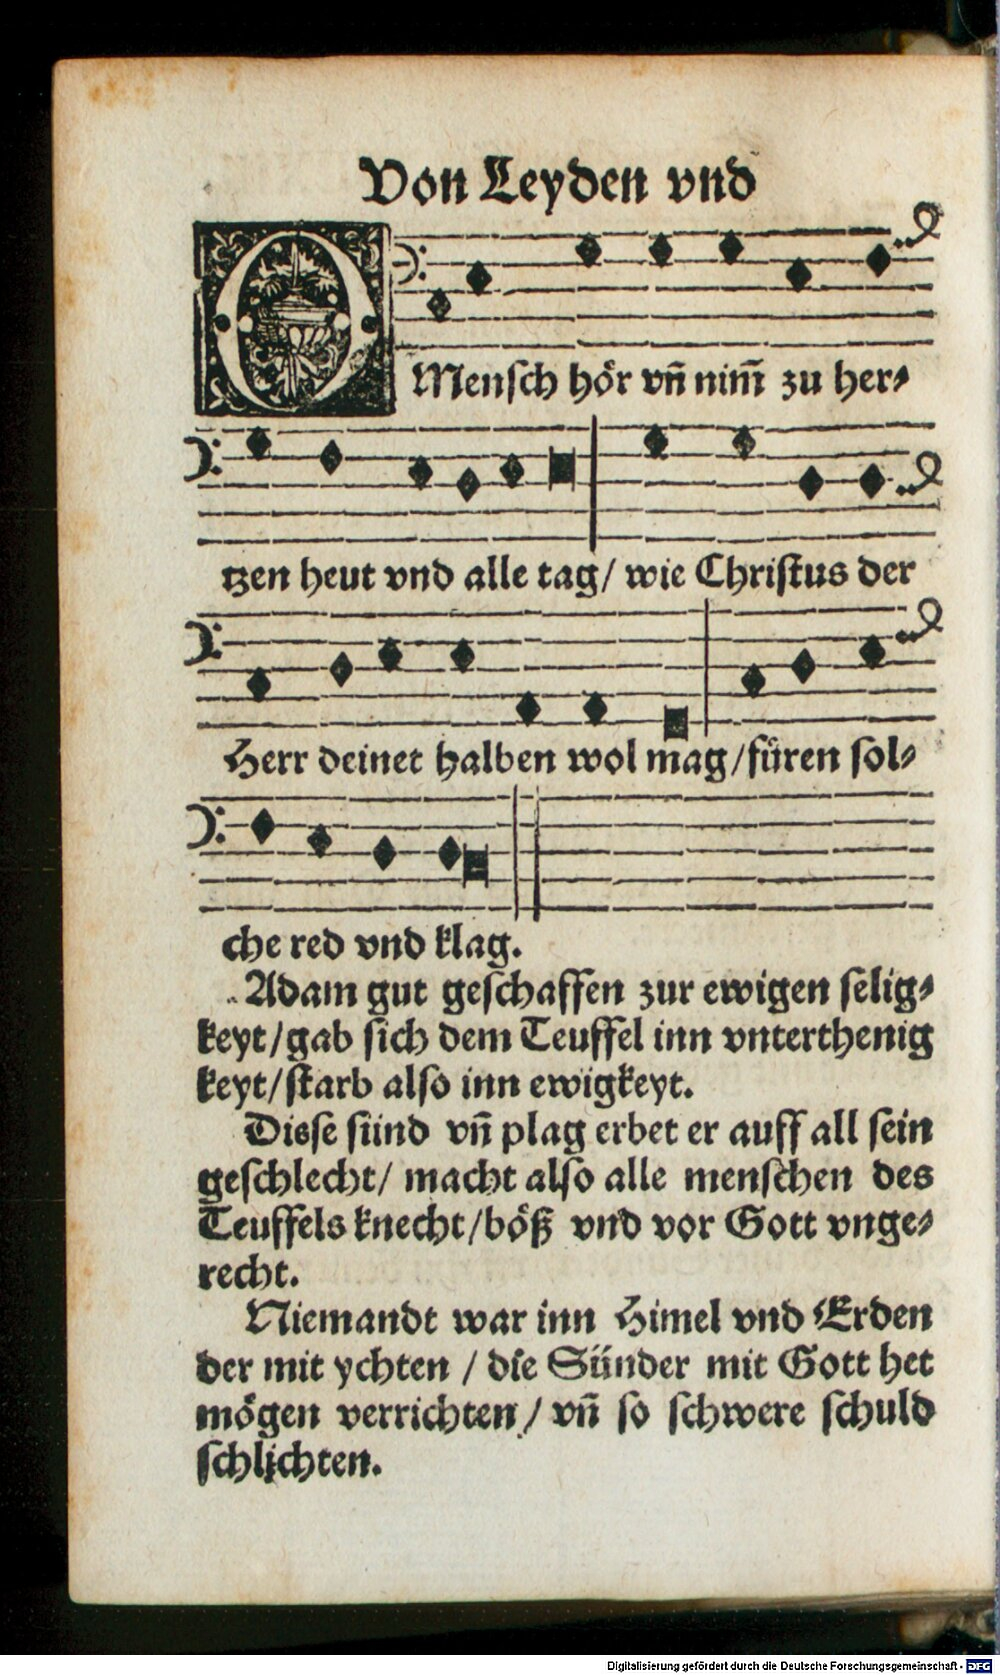 Von Leyden vnd
O Mensch hör vñ nim̃ zu her⸗
tzen heut vnd alle tag/ wie Christus der
Herr deinet halben wol mag/füren sol⸗
che red vnd klag.
Adam gut geschaffen zur ewigen selig⸗
keyt/gab sich dem Teuffel inn vnterthenig
keyt/starb also inn ewigkeyt.
Disse sünd vñ plag erbet er auff all sein
geschlecht/ macht also alle menschen des
Teuffels knecht/böß vnd vor Gott vnge⸗
recht.
Niemandt war inn Himel vnd Erden
der mit ychten / die Sünder mit Gott het
mögen verrichten/ vñ so schwere schuld
schlichten.
Digitalisierung gefördert durch die Deutsche Forschungsgemeinschaft - DFG